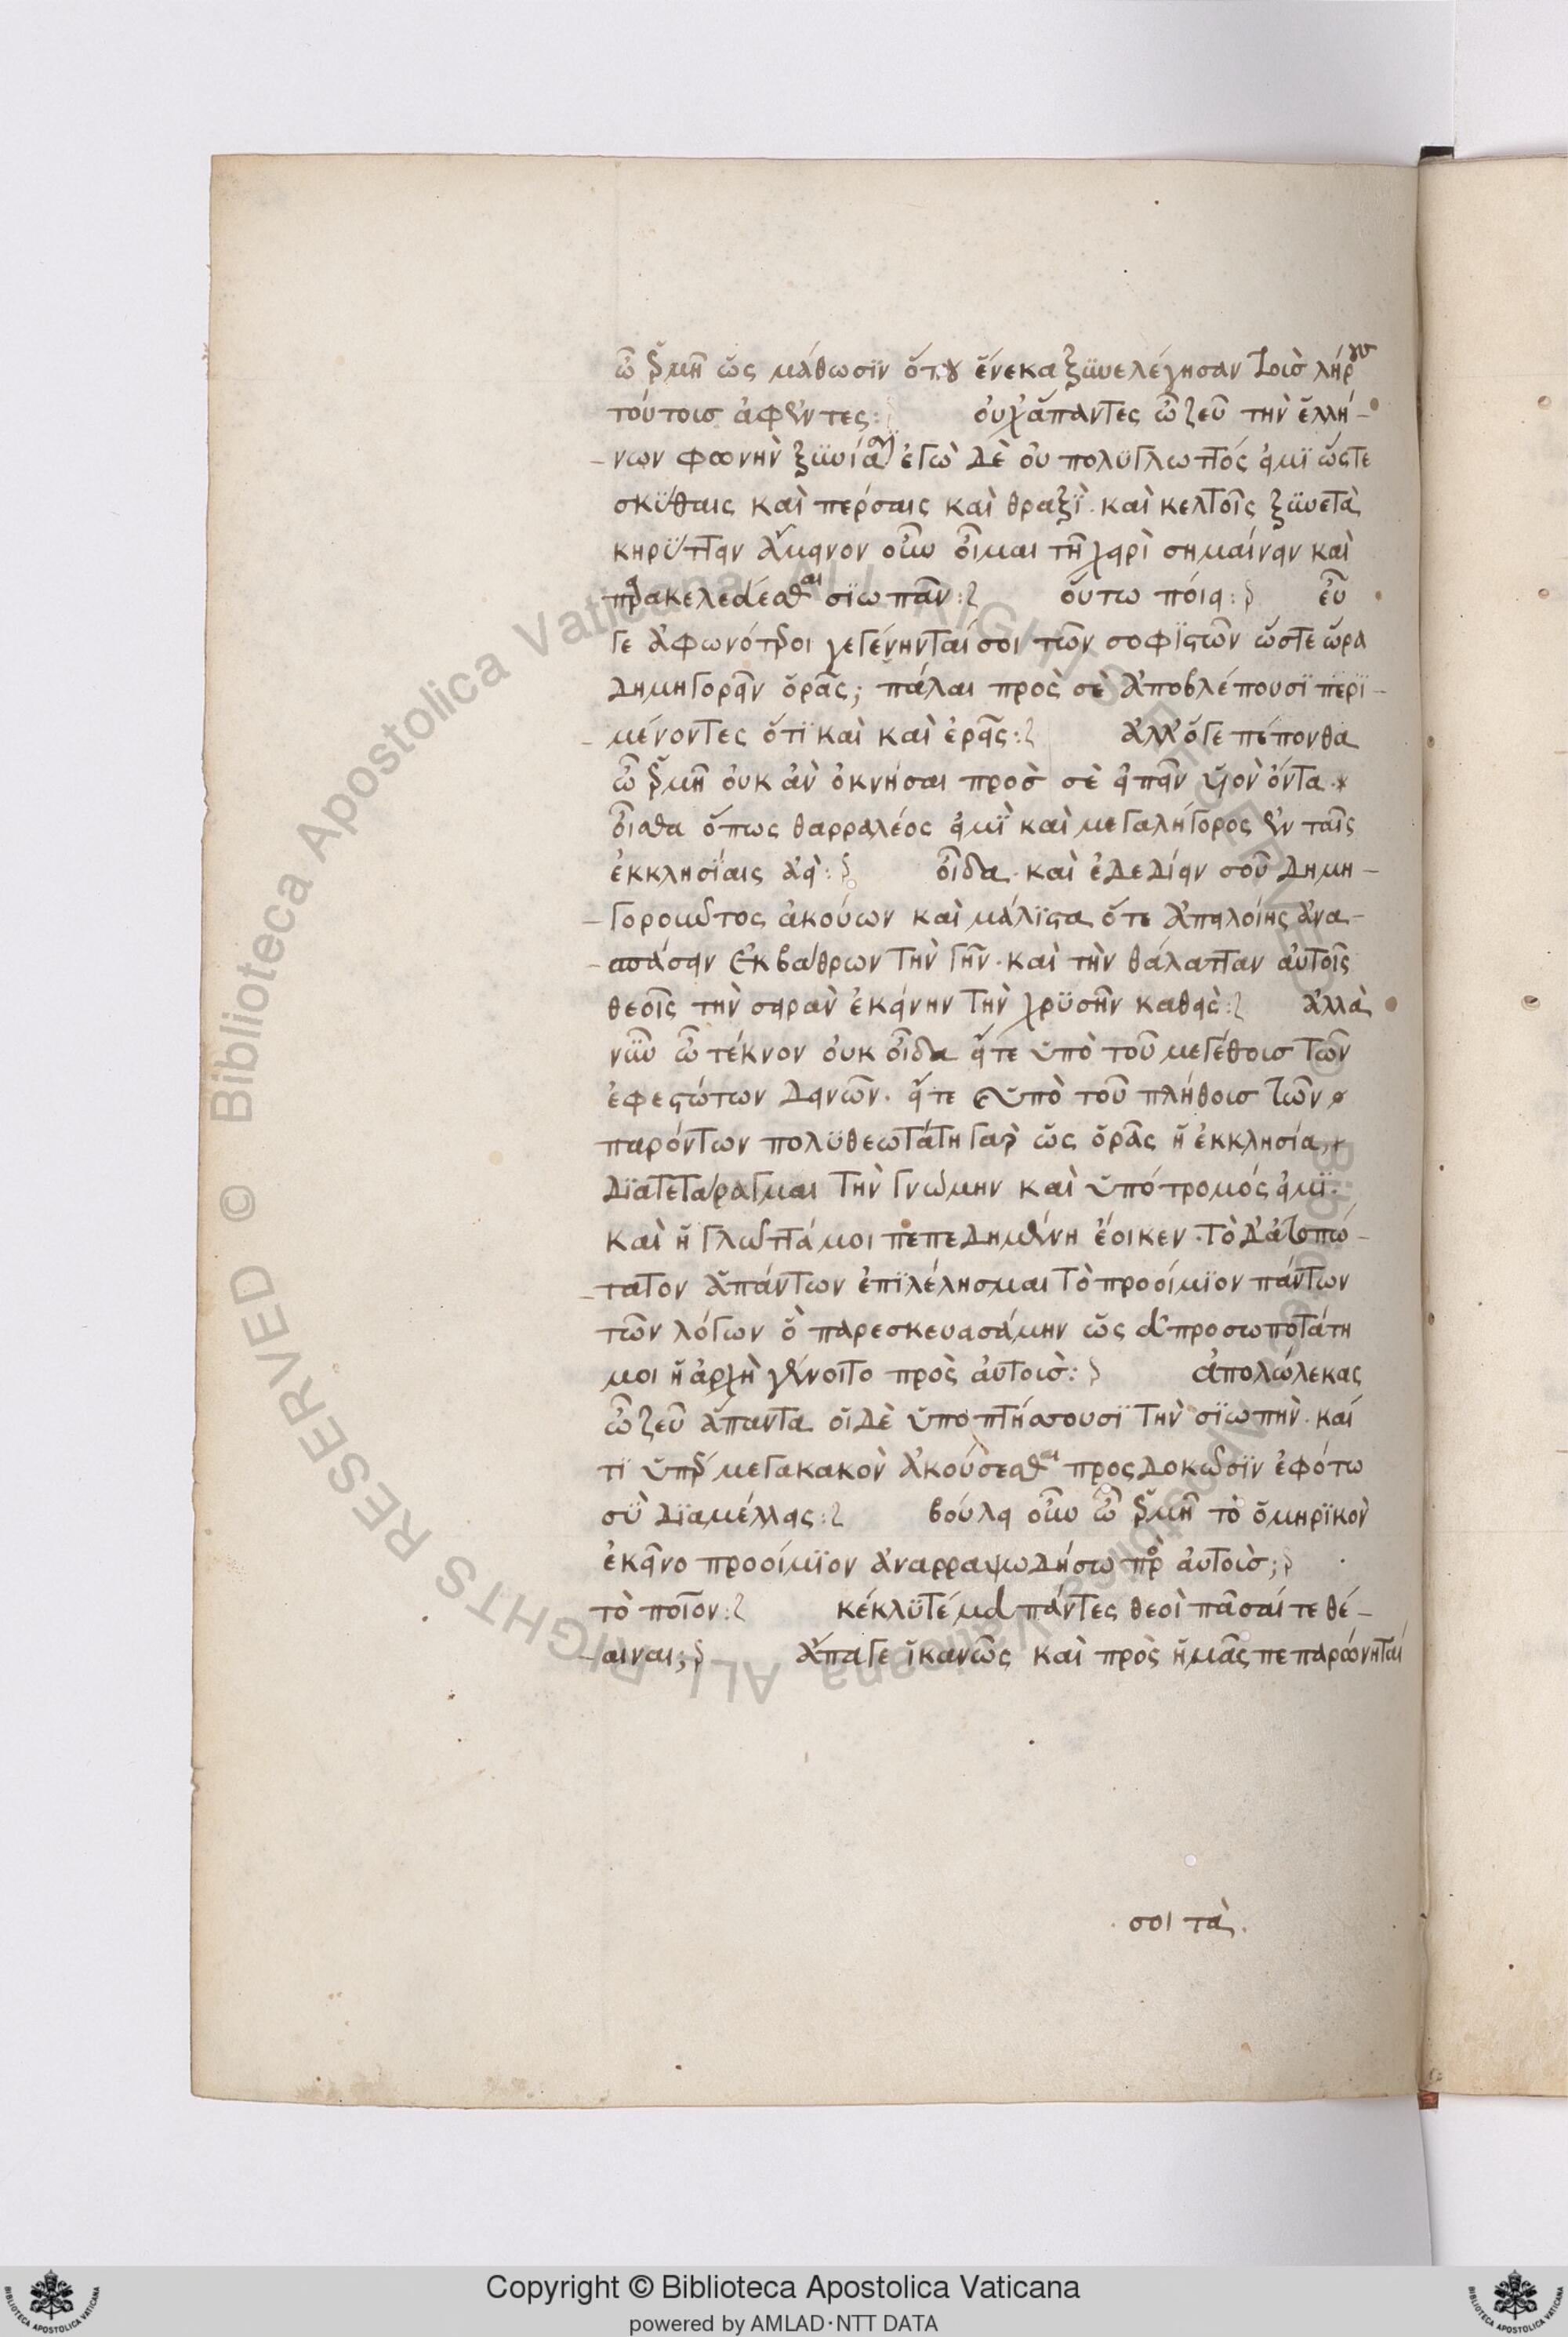 ὦ ἑρμῆ ὡς μάθωσϊν ὅτου ἕνεκα ξϋνελέγησαν τοὺσ λήρουσ
τούτουσ ἀφέντες: οὐχ ἅπαντες ὦ ζεῦ τὴν ἑλλή-
-νων φωνὴν ξϋνίασϊν ἐγὼ δὲ οὐ πολϋγλωττός εἰμϊ ὥστε
σκΰθαις καὶ πέρσαις καὶ θραξῒ. καὶ κελτοῖς ξϋνετὰ
κηρΰττειν ἄμεινον οὖν οἶμαι τῆ χειρὶ σημαίνειν καὶ
παρακελεύεσθαι σϊωπᾶν: οὕτω ποίει: εὖ
γε ἀφωνότεροι γεγένηνταί σοι τῶν σοφϊστῶν ὥστε ὥρα
δημηγορεῖν ὁρᾶς; πάλαι πρὸς σὲ ἀποβλέπουσϊ περϊ-
-μένοντες ὅτϊ καὶ καὶ ἐρεῖς: ἀλλ' ὅγε πέπονθα
ὦ ἑρμῆ οὐκ ἂν ὀκνήσαι πρὸσ σὲ εἰπεῖν υἱὸν ὄντα.
οἶσθα ὅπως θαρραλέος εἰμῒ καὶ μεγαλήγορος ἐν ταῖς
ἐκκλησΐαις ἀεὶ: οἶδα. καὶ ἐδεδίειν σοῦ δημη-
-γοροῦντος ἀκούων καὶ μάλϊστα ὅτε ἀπειλοίης ἀνα-
-σπάσειν ἐκ βάθρων τὴν γῆν. καὶ τὴν θάλατταν αὐτοῖς
θεοῖς τὴν σειρὰν ἐκείνην τὴν χρϋσῆν καθεὶς: ἀλλὰ
νῦν ὦ τέκνον οὐκ οἶδα εἴτε ὑπὸ τοῦ μεγέθουσ τῶν
ἐφεστώτων δεινῶν. εἴτε ὑπὸ τοῦ πλήθουσ τῶν
παρόντων πολϋθεωτάτη γαρ ὡς ὁρᾶς ἡ ἐκκλησία,
δϊατετάραγμαι τὴν γνώμην καὶ ὑπότρομός εἰμϊ.
καὶ ἡ γλῶττά μοι πεπεδημένη ἔοικεν. τὸ δ' ἀτοπώ-
-τατον ἁπάντων ἐπϊλέλησμαι τὸ προοίμϊον πάντων
τῶν λόγων ὃ παρεσκευασάμην ὡς εὐπροσωποτάτη
μοι ἡ ἀρχὴ γένοιτο πρὸς αὐτούσ: ἀπολώλεκας
ὦ ζεῦ ἅπαντα οἱ δὲ ὑποπτήσσουσϊ τὴν σϊωπὴν. καί
τϊ ὑπέρμεγα κακὸν ἀκούσεσθαι προςδοκῶσϊν ἐφότω
σῢ δϊαμέλλεις: βούλει οὖν ὦ ἑρμῆ τὸ ὁμηρϊκὸν
ἐκεῖνο προοίμϊον ἀναρραψωδήσω πρὸς αὐτούσ;
τὸ ποῖον: κέκλϋτέ μευ πάντες θεοὶ πᾶσαί τε θέ-
-αιναι; ἄπαγε ἱκανῶς καὶ πρὸς ἡμᾶς πεπαρώνηταί
σοι τὰ.
Copyright © Biblioteca Apostolica Vaticana
powered by AMLAD·NTT DATA